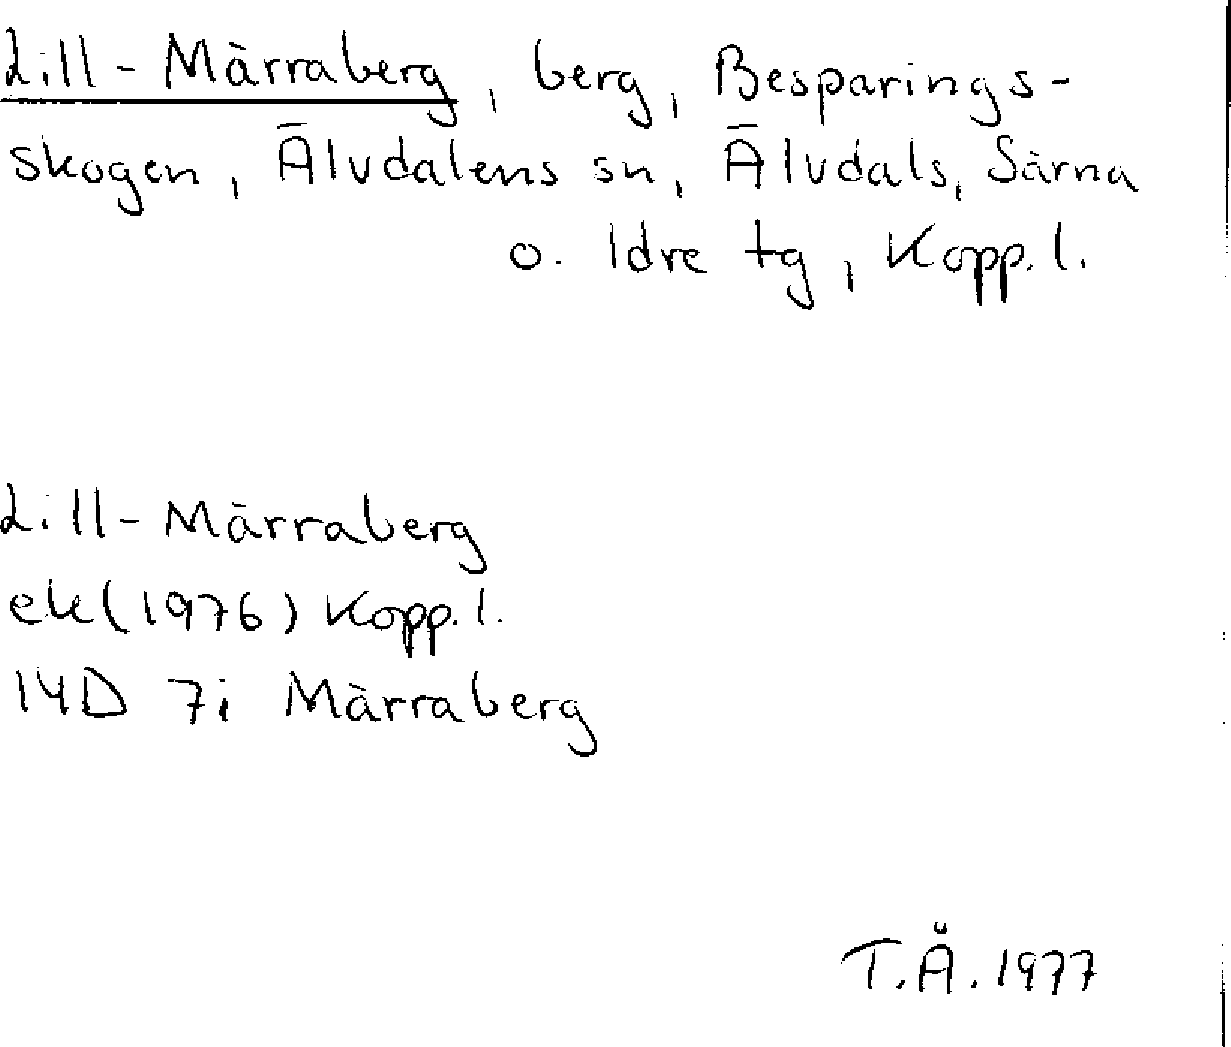 Lill-Märraberg, berg, Besparings-
skogen, Älvdalens sn, Älvdals, Särna
o. Idre tg, Kopp. l.
Lill-Märraberg
ek (1976) Kopp. l.
14D 7i Märraberg
T.Å. 1977